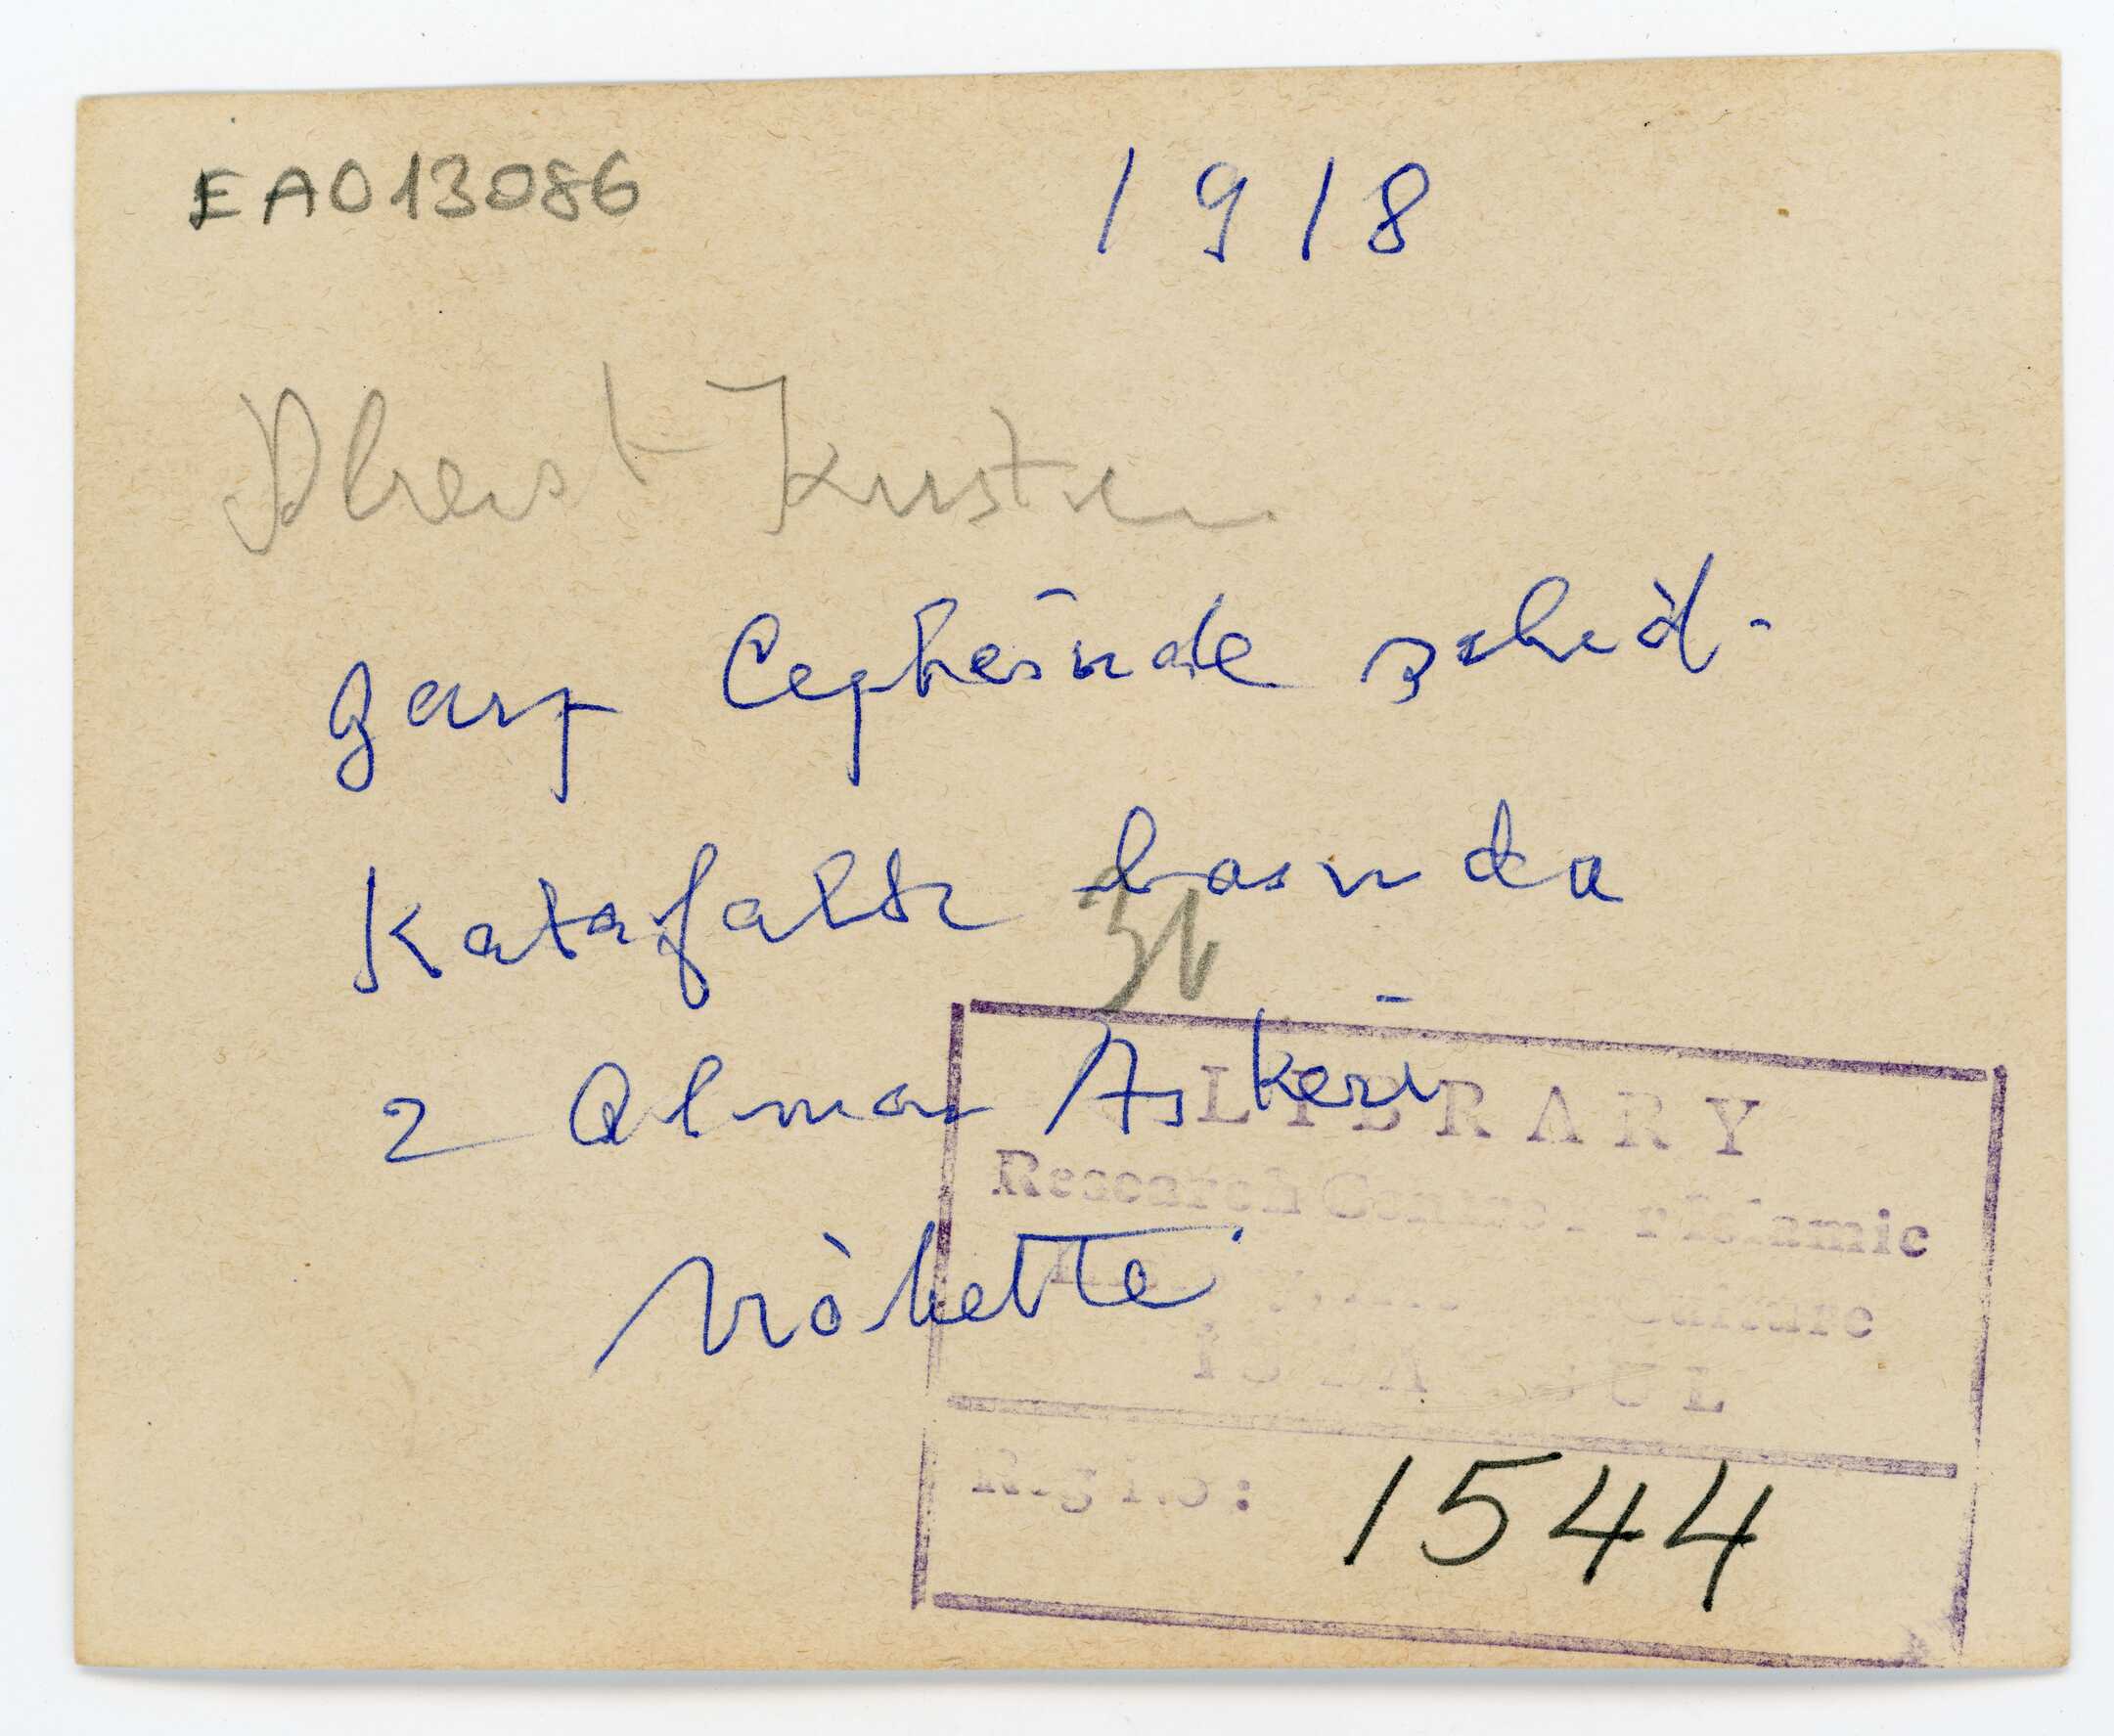 EA013086 1918
Oberst Küsten
garp Cephesinde şehid.
Katafalk basında
2 alman Askeri
nöbette
LIBRARY
Research Centre For Islamic
Culture
ISTANBUL
Reg no: 1544